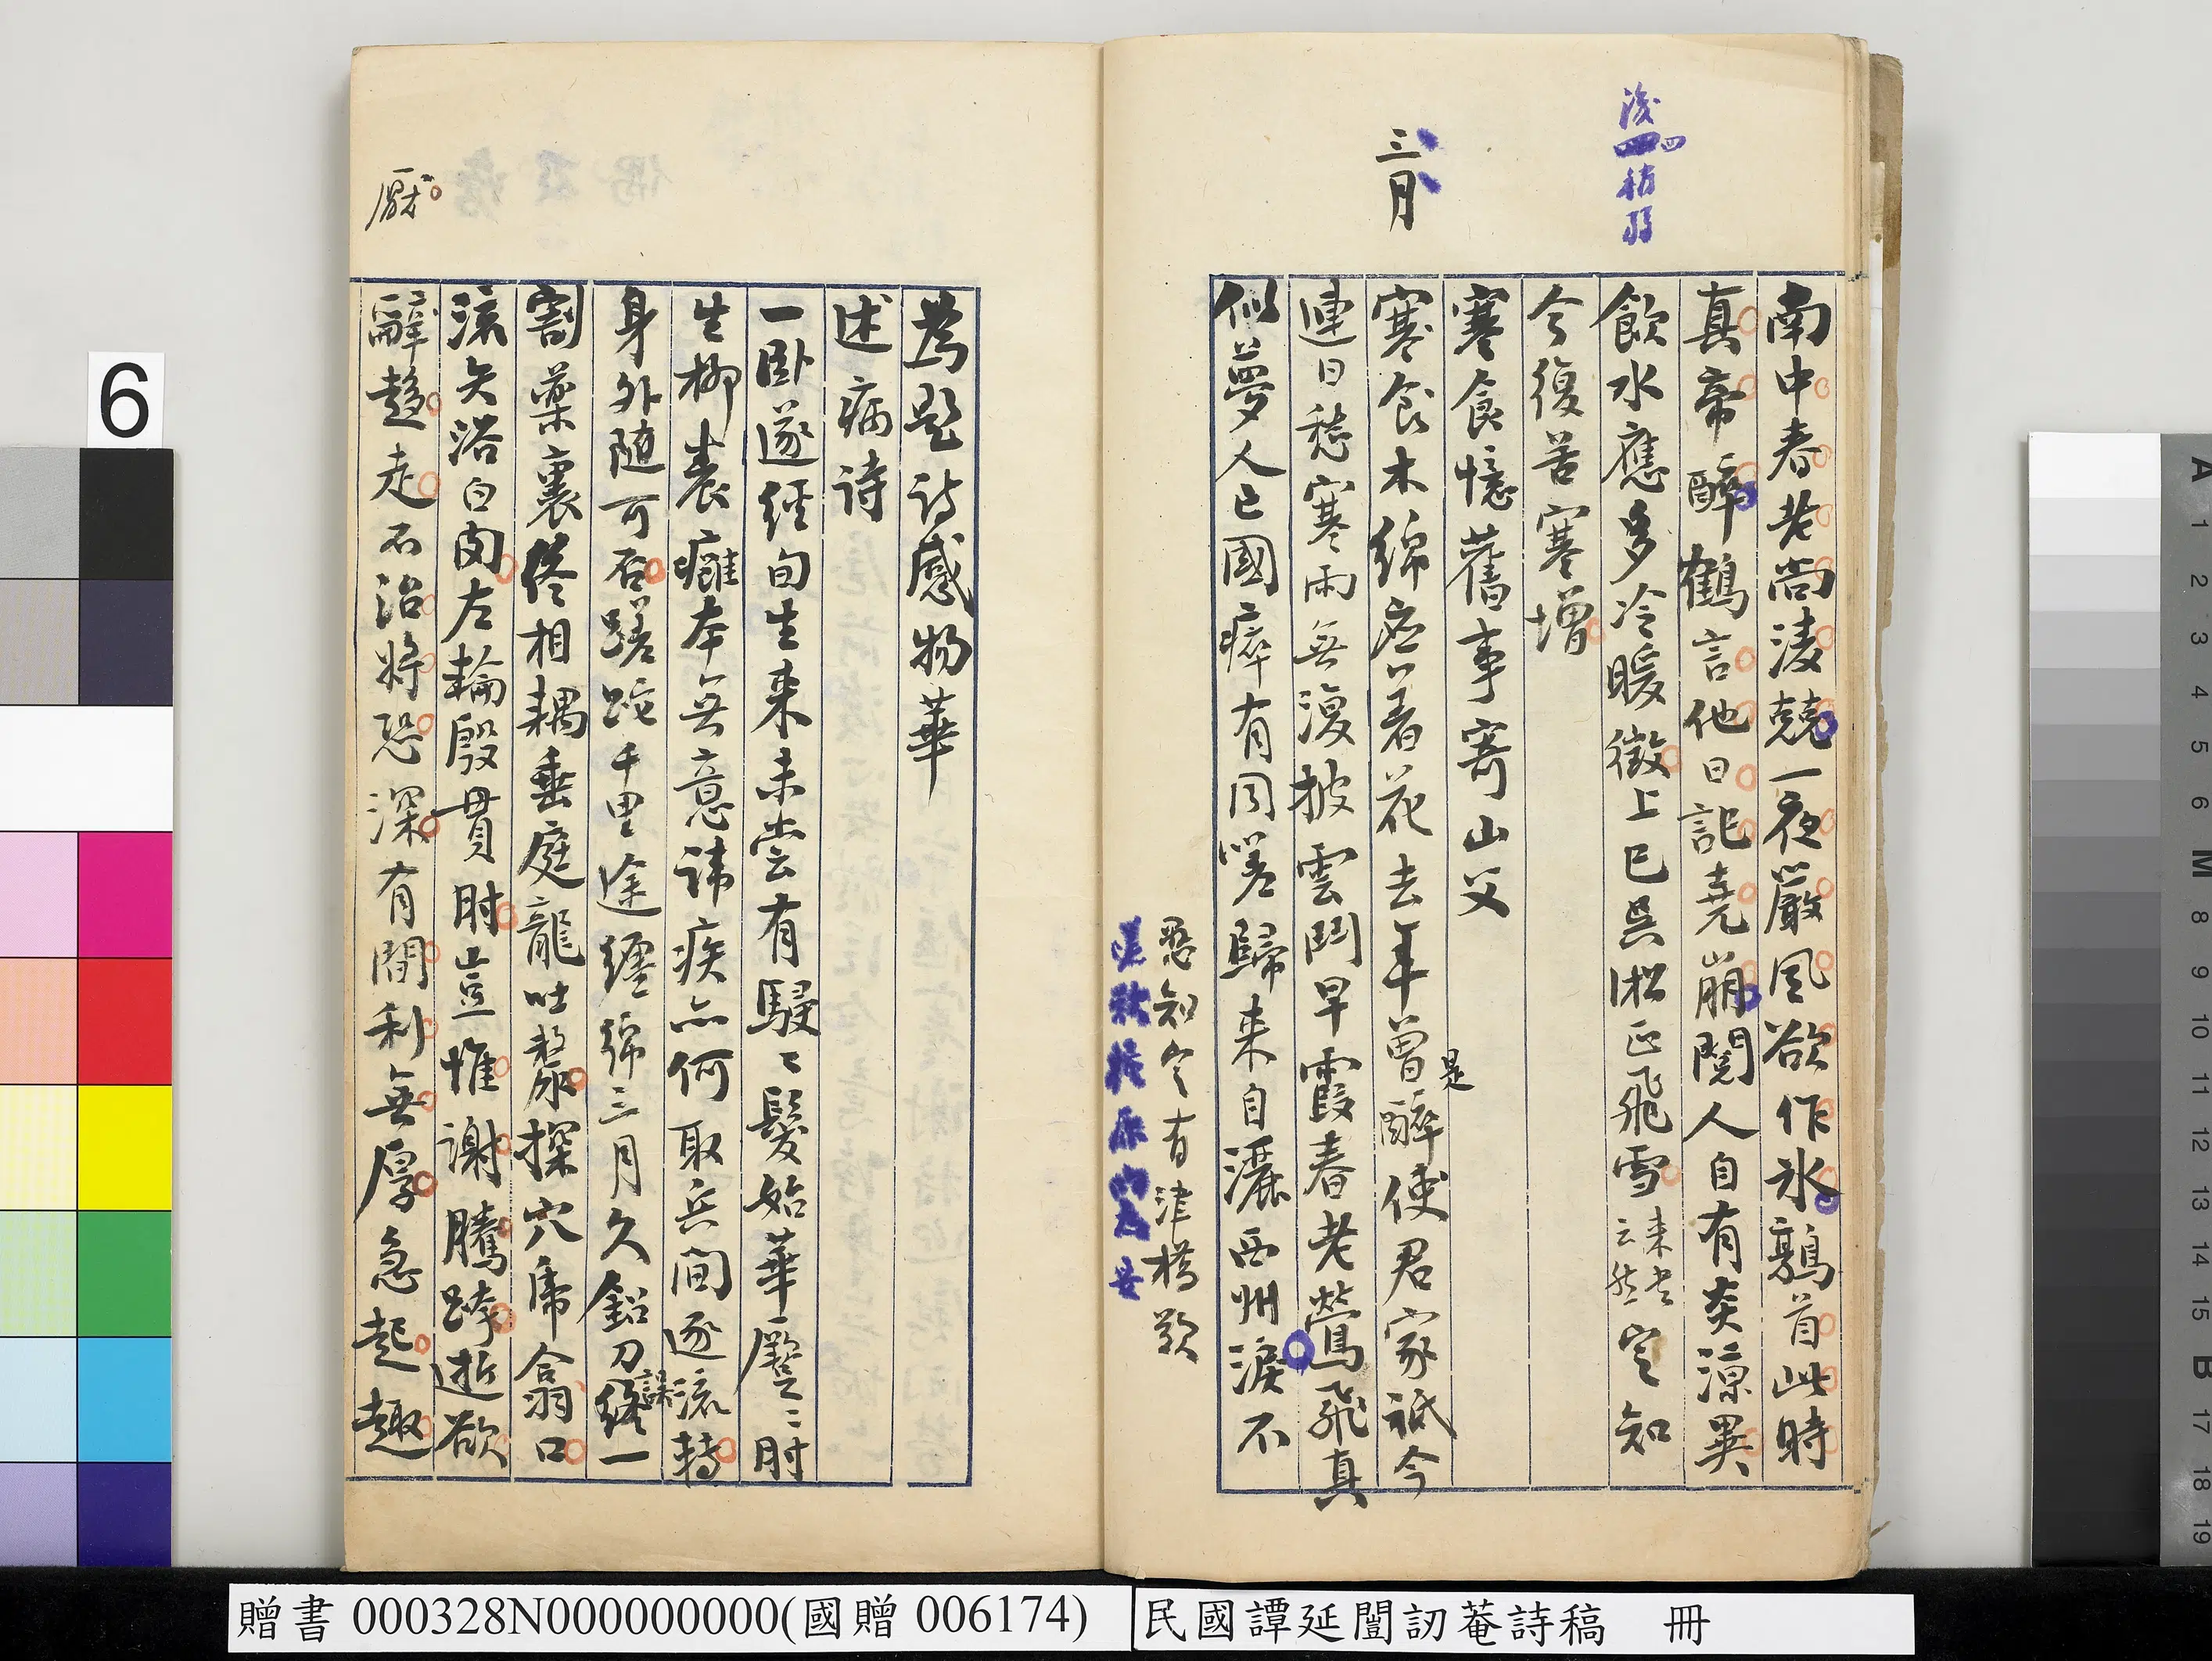 後四稍弱
南中春老尚淩兢一夜嚴風欲作冰鶉首此時
真帝醉鶴言他日記堯崩閱人自有炎涼異
飲水應多冷暖徵上巳吳淞正飛雪來書云然定知
今復苦寒增
寒食憶舊事寄山父
三月
寒食木綿應著花去年曾醉使君家祇今
是
連日愁寒雨無復披雲鬥早霞春老鶯飛真
似夢人亡國瘁有同嗟歸來自灑西州淚不
悉知定有津橋歎
為題詩感物華
述病詩
一臥遂經旬生來未嘗有駸〻鬢始華蹷〻肘
生柳裹癰本無意諱疾亦何取兵間逐流轉
身外隨可否蹉跎千里途纏綿三月久鉛刀終一
誤
割藥裹佟相耦垂庭龍吐漦探穴虎翕口
流矢浴白肉左輪殷貫肘豈惟謝騰跨逝欲
辭趨走不治將恐深有間利無厚急起趣
厭
6
贈書 000328N000000000(國贈 006174)
民國譚延闓訒菴詩稿 冊
A 1 2 3 4 5 6 M 8 9 10 11 12 13 14 15 B 17 18 19